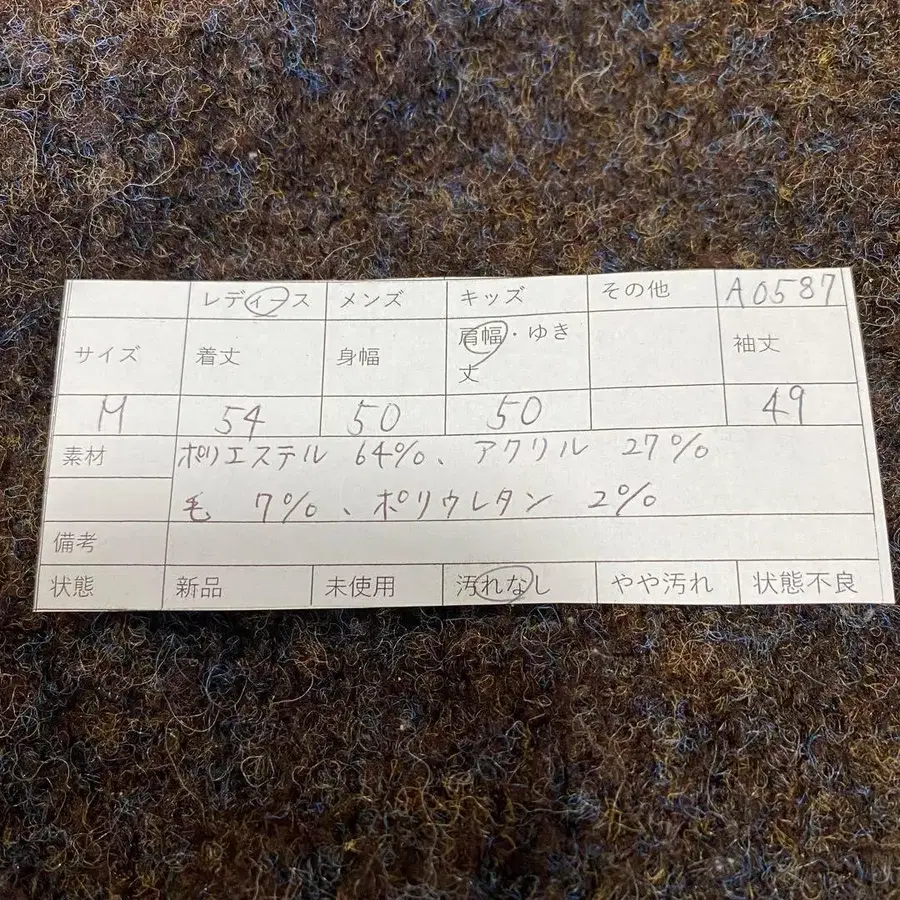 レディース メンズ キッズ その他 A0587
サイズ 着丈 身幅 肩幅・ゆき丈 袖丈
M 54 50 50 49
素材 ポリエステル 64%、アクリル 27%
毛 7%、ポリウレタン 2%
備考
状態 新品 未使用 汚れなし やや汚れ 状態不良